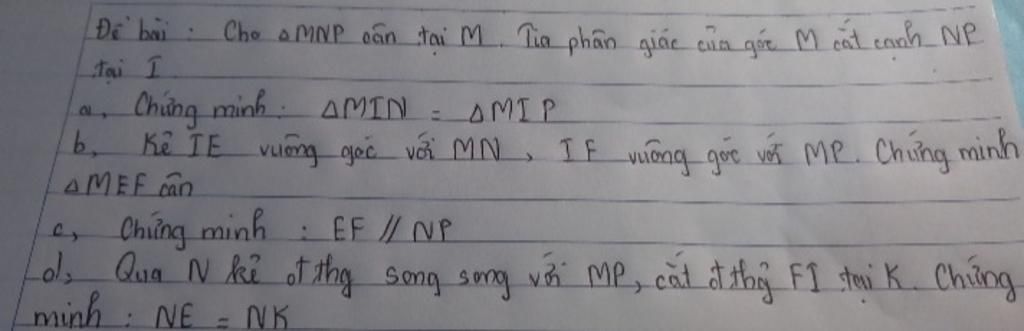 Đề bài : Cho △MNP cân tại M. Tia phân giác của góc M cắt cạnh NP
tại I
a, Chứng minh : △MIN = △MIP
b, Kẻ IE vuông góc với MN, IF vuông góc với MP. Chứng minh
△MEF cân
c, Chứng minh : EF // NP
d, Qua N kẻ đ thg song song với MP, cắt đ thg FI tại K. Chứng
minh : NE = NK